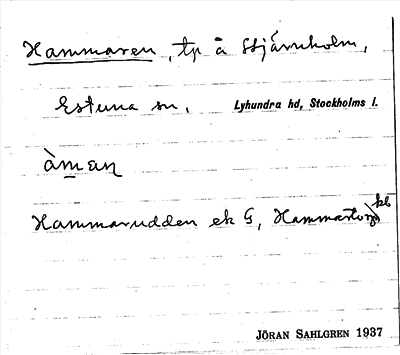 Hammaren, tp å Stjärnholm,
Estuna sn, Lyhundra hd, Stockholms l.
àman
Hammarudden ek G, Hammartorp kb
JÖRAN SAHLGREN 1937